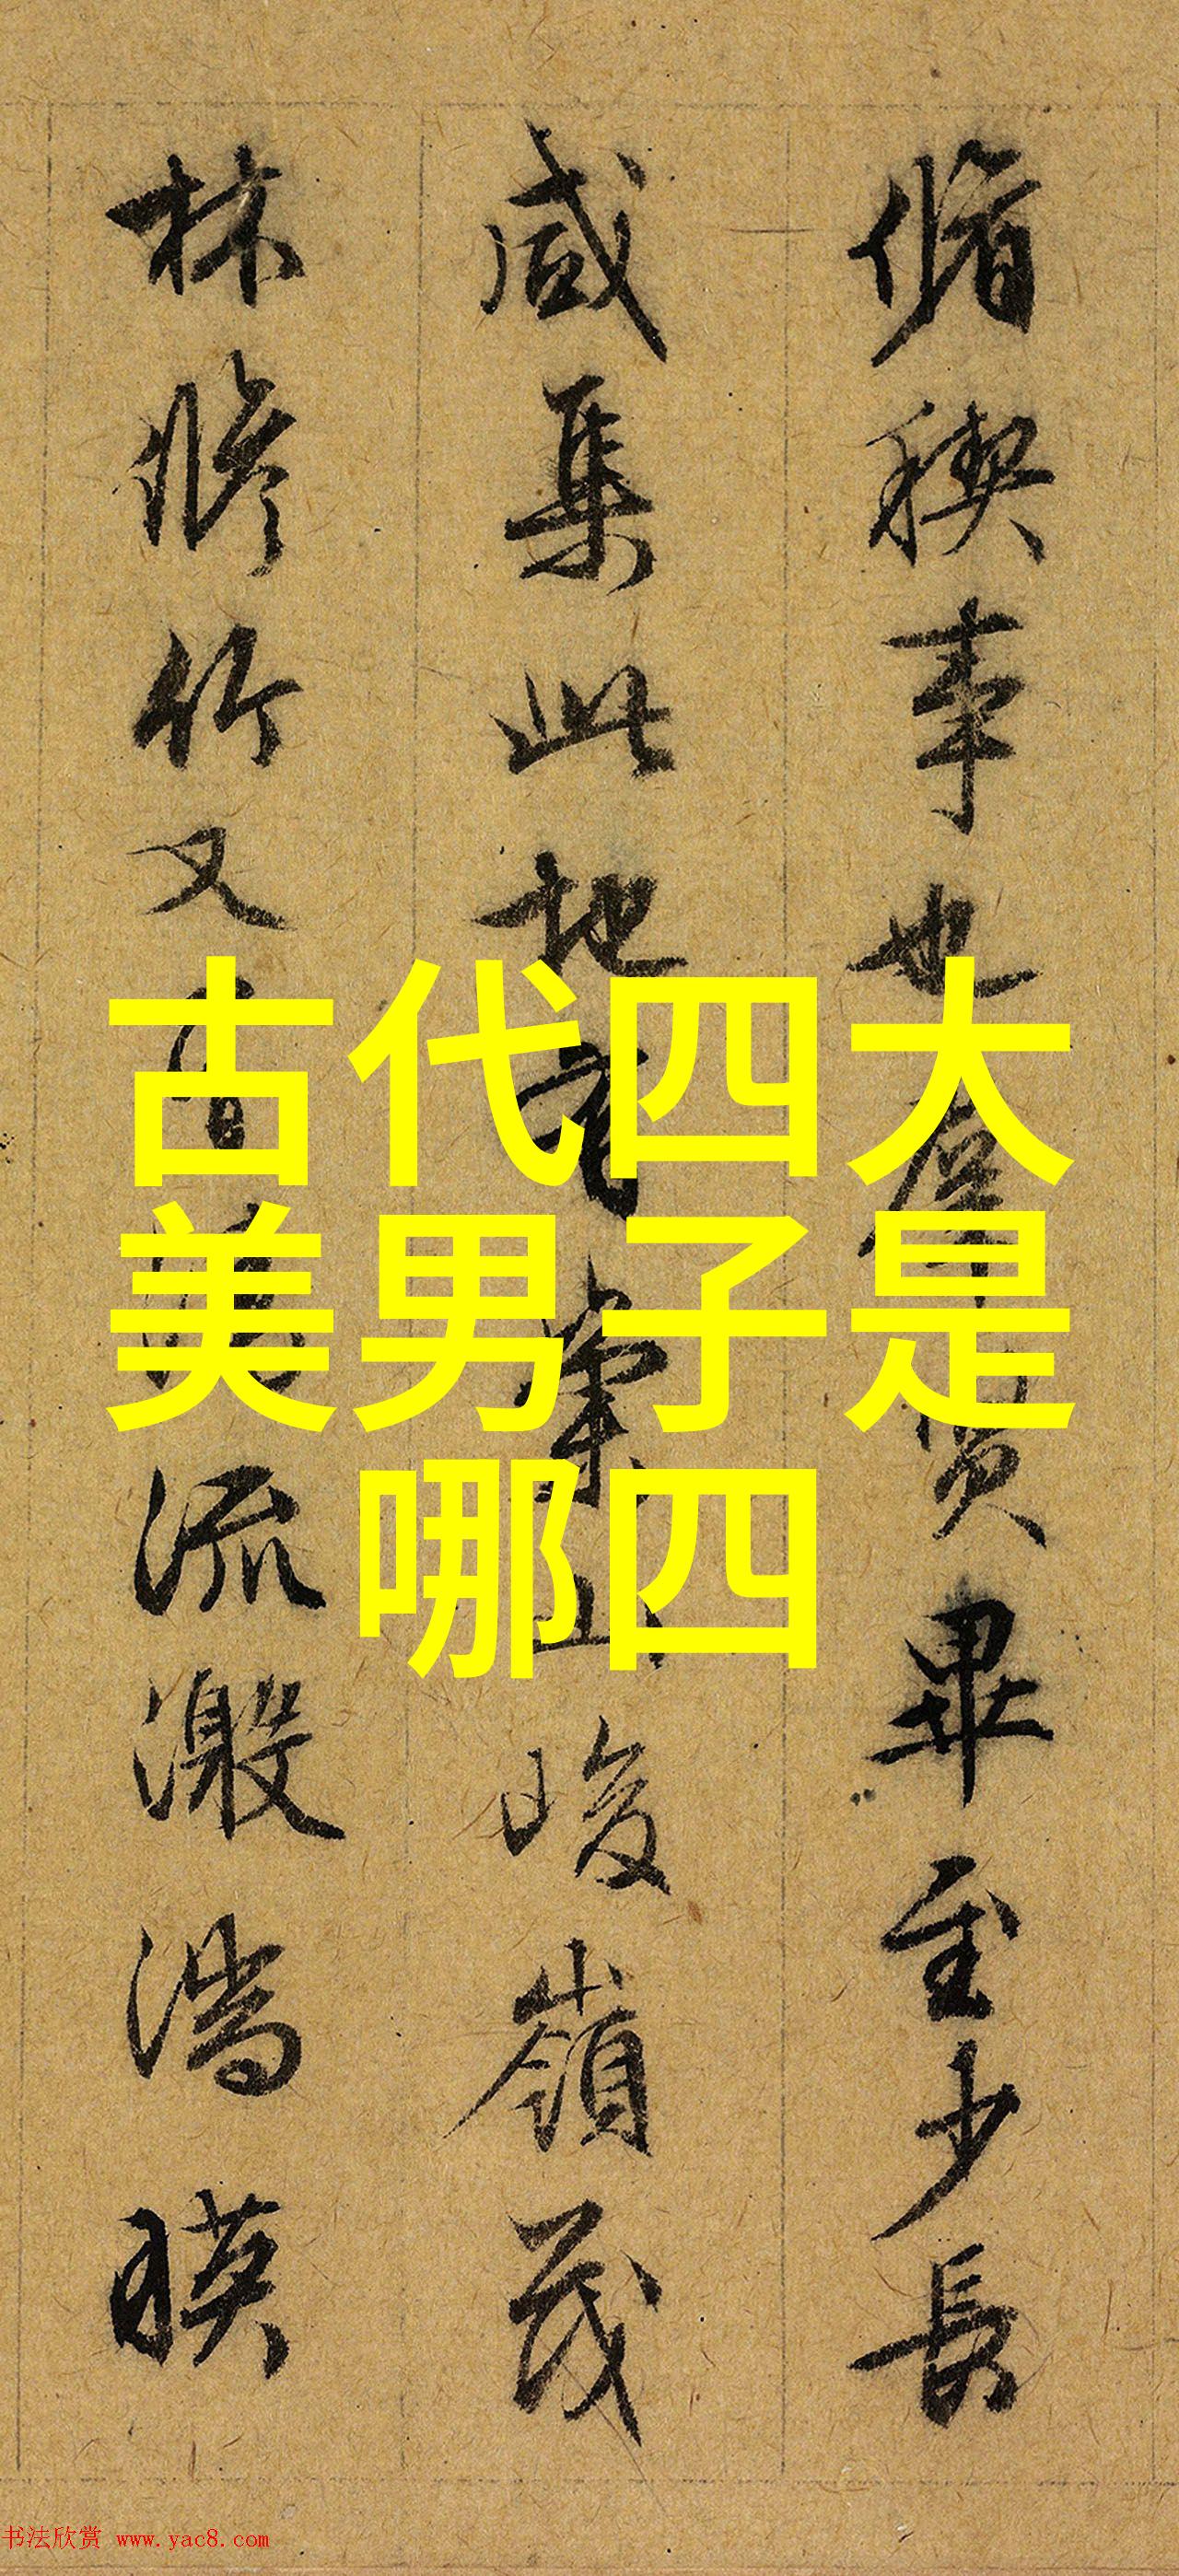 脩稧事也群賢畢至少長
咸集此地有崇山峻嶺茂
林脩竹又有清流激湍暎
古代四大
美男子是
哪四
书法欣赏 www.yac8.com